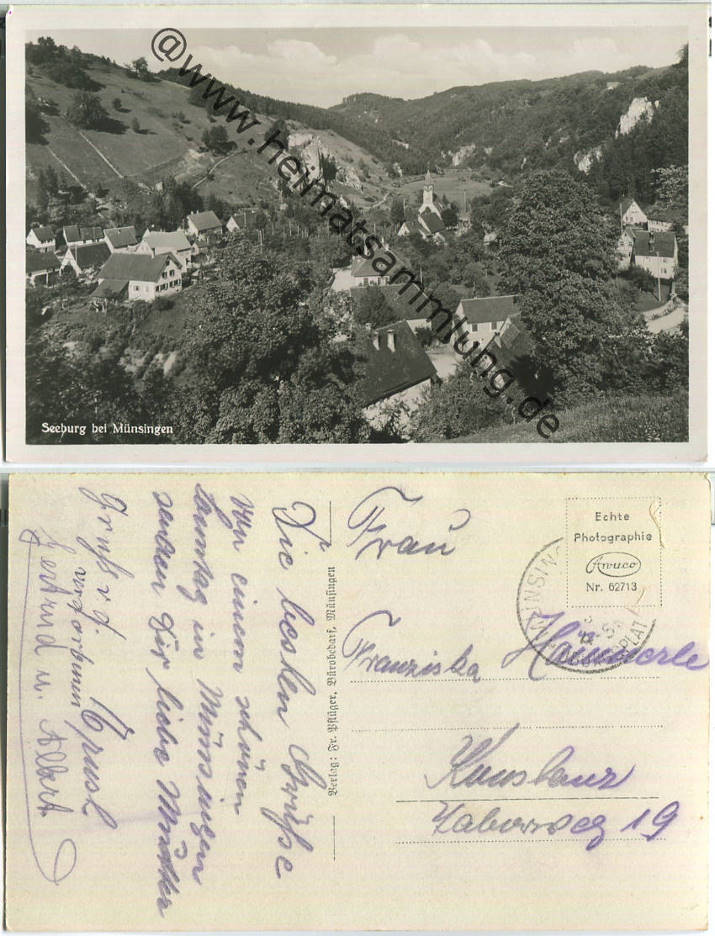 @www.heimatsammlung.de
Seeburg bei Münsingen
Die besten Grüße
von einem schönen
Samstag in Münsingen
senden Dir liebe Mutter
Gertrud u. Albert
Verlag: Fr. Pflüger, Bürobedarf, Münsingen
Echte
Photographie
Awuco
Nr. 62713
MÜNSINGEN
PLATZ
Frau
Franziska Hämmerle
Konstanz
Taborweg 19